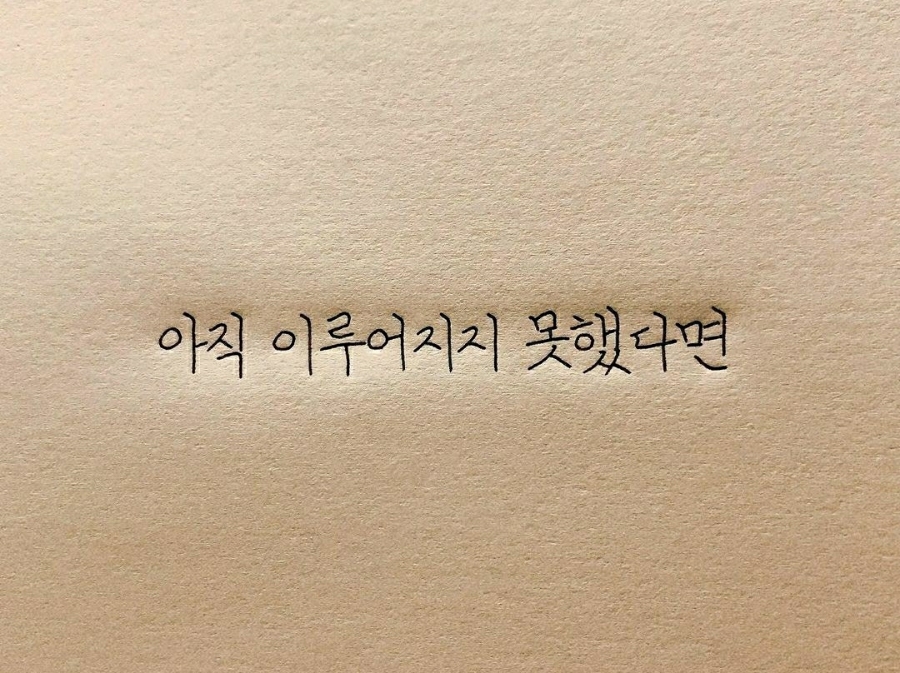 아직 이루어지지 못했다면